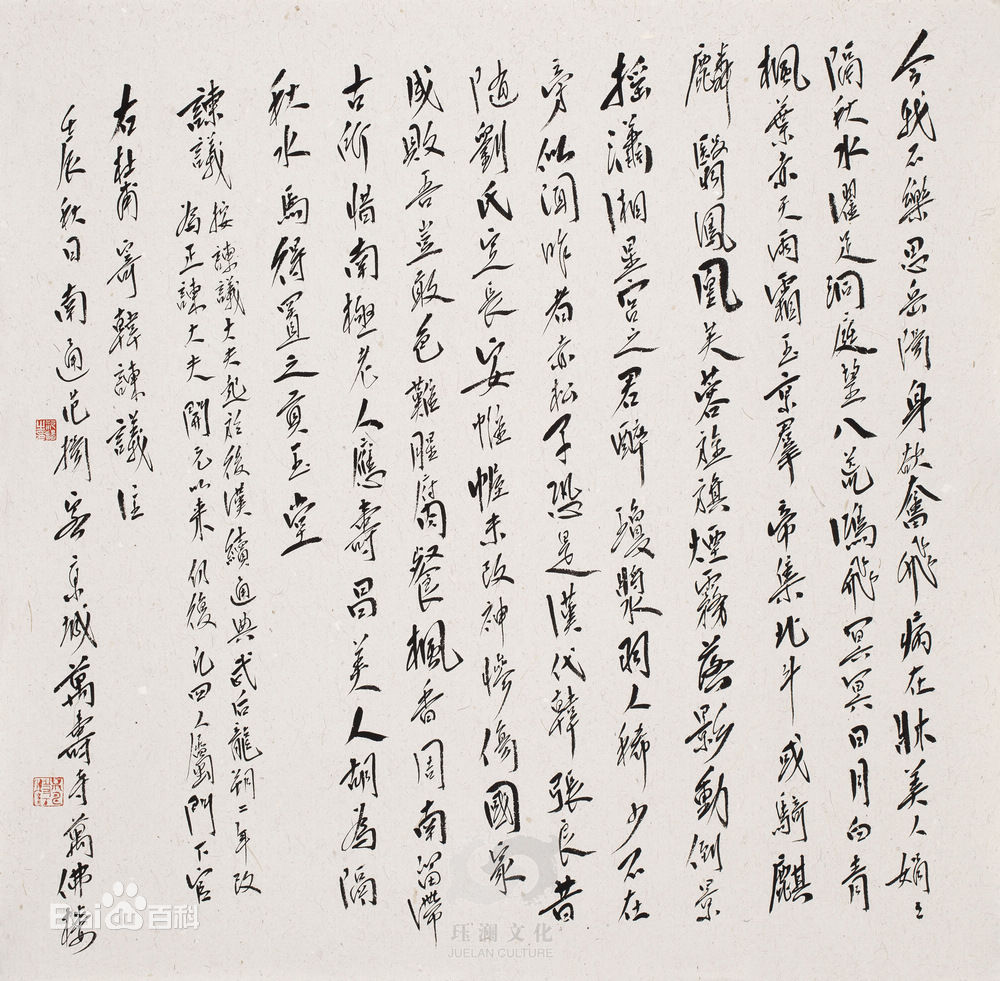 今我不樂思岳陽身欲奮飛病在牀美人娟〻
隔秋水濯足洞庭望八荒鴻飛冥冥日月白青
楓葉赤天雨霜玉京羣帝集北斗或騎麒
麟翳鳳凰芙蓉旌旗煙霧落影動倒景
搖瀟湘星宮之君醉瓊漿羽人稀少不在
旁似聞昨者赤松子恐是漢代韓張良昔
隨劉氏定長安帷幄未改神慘傷國家
成敗吾豈敢色難腥腐餐楓香周南留滯
古所惜南極老人應壽昌美人胡為隔
秋水焉得置之貢玉堂
諫議 按諫議大夫起於後漢續通典武后龍朔二年改
為正諫大夫開元以來仍復凡四人屬門下官
右杜甫寄韓諫議注
壬辰秋日南通范揚客京城萬壽寺萬佛樓
Bai 百科
珏澜文化
JUELAN CULTURE